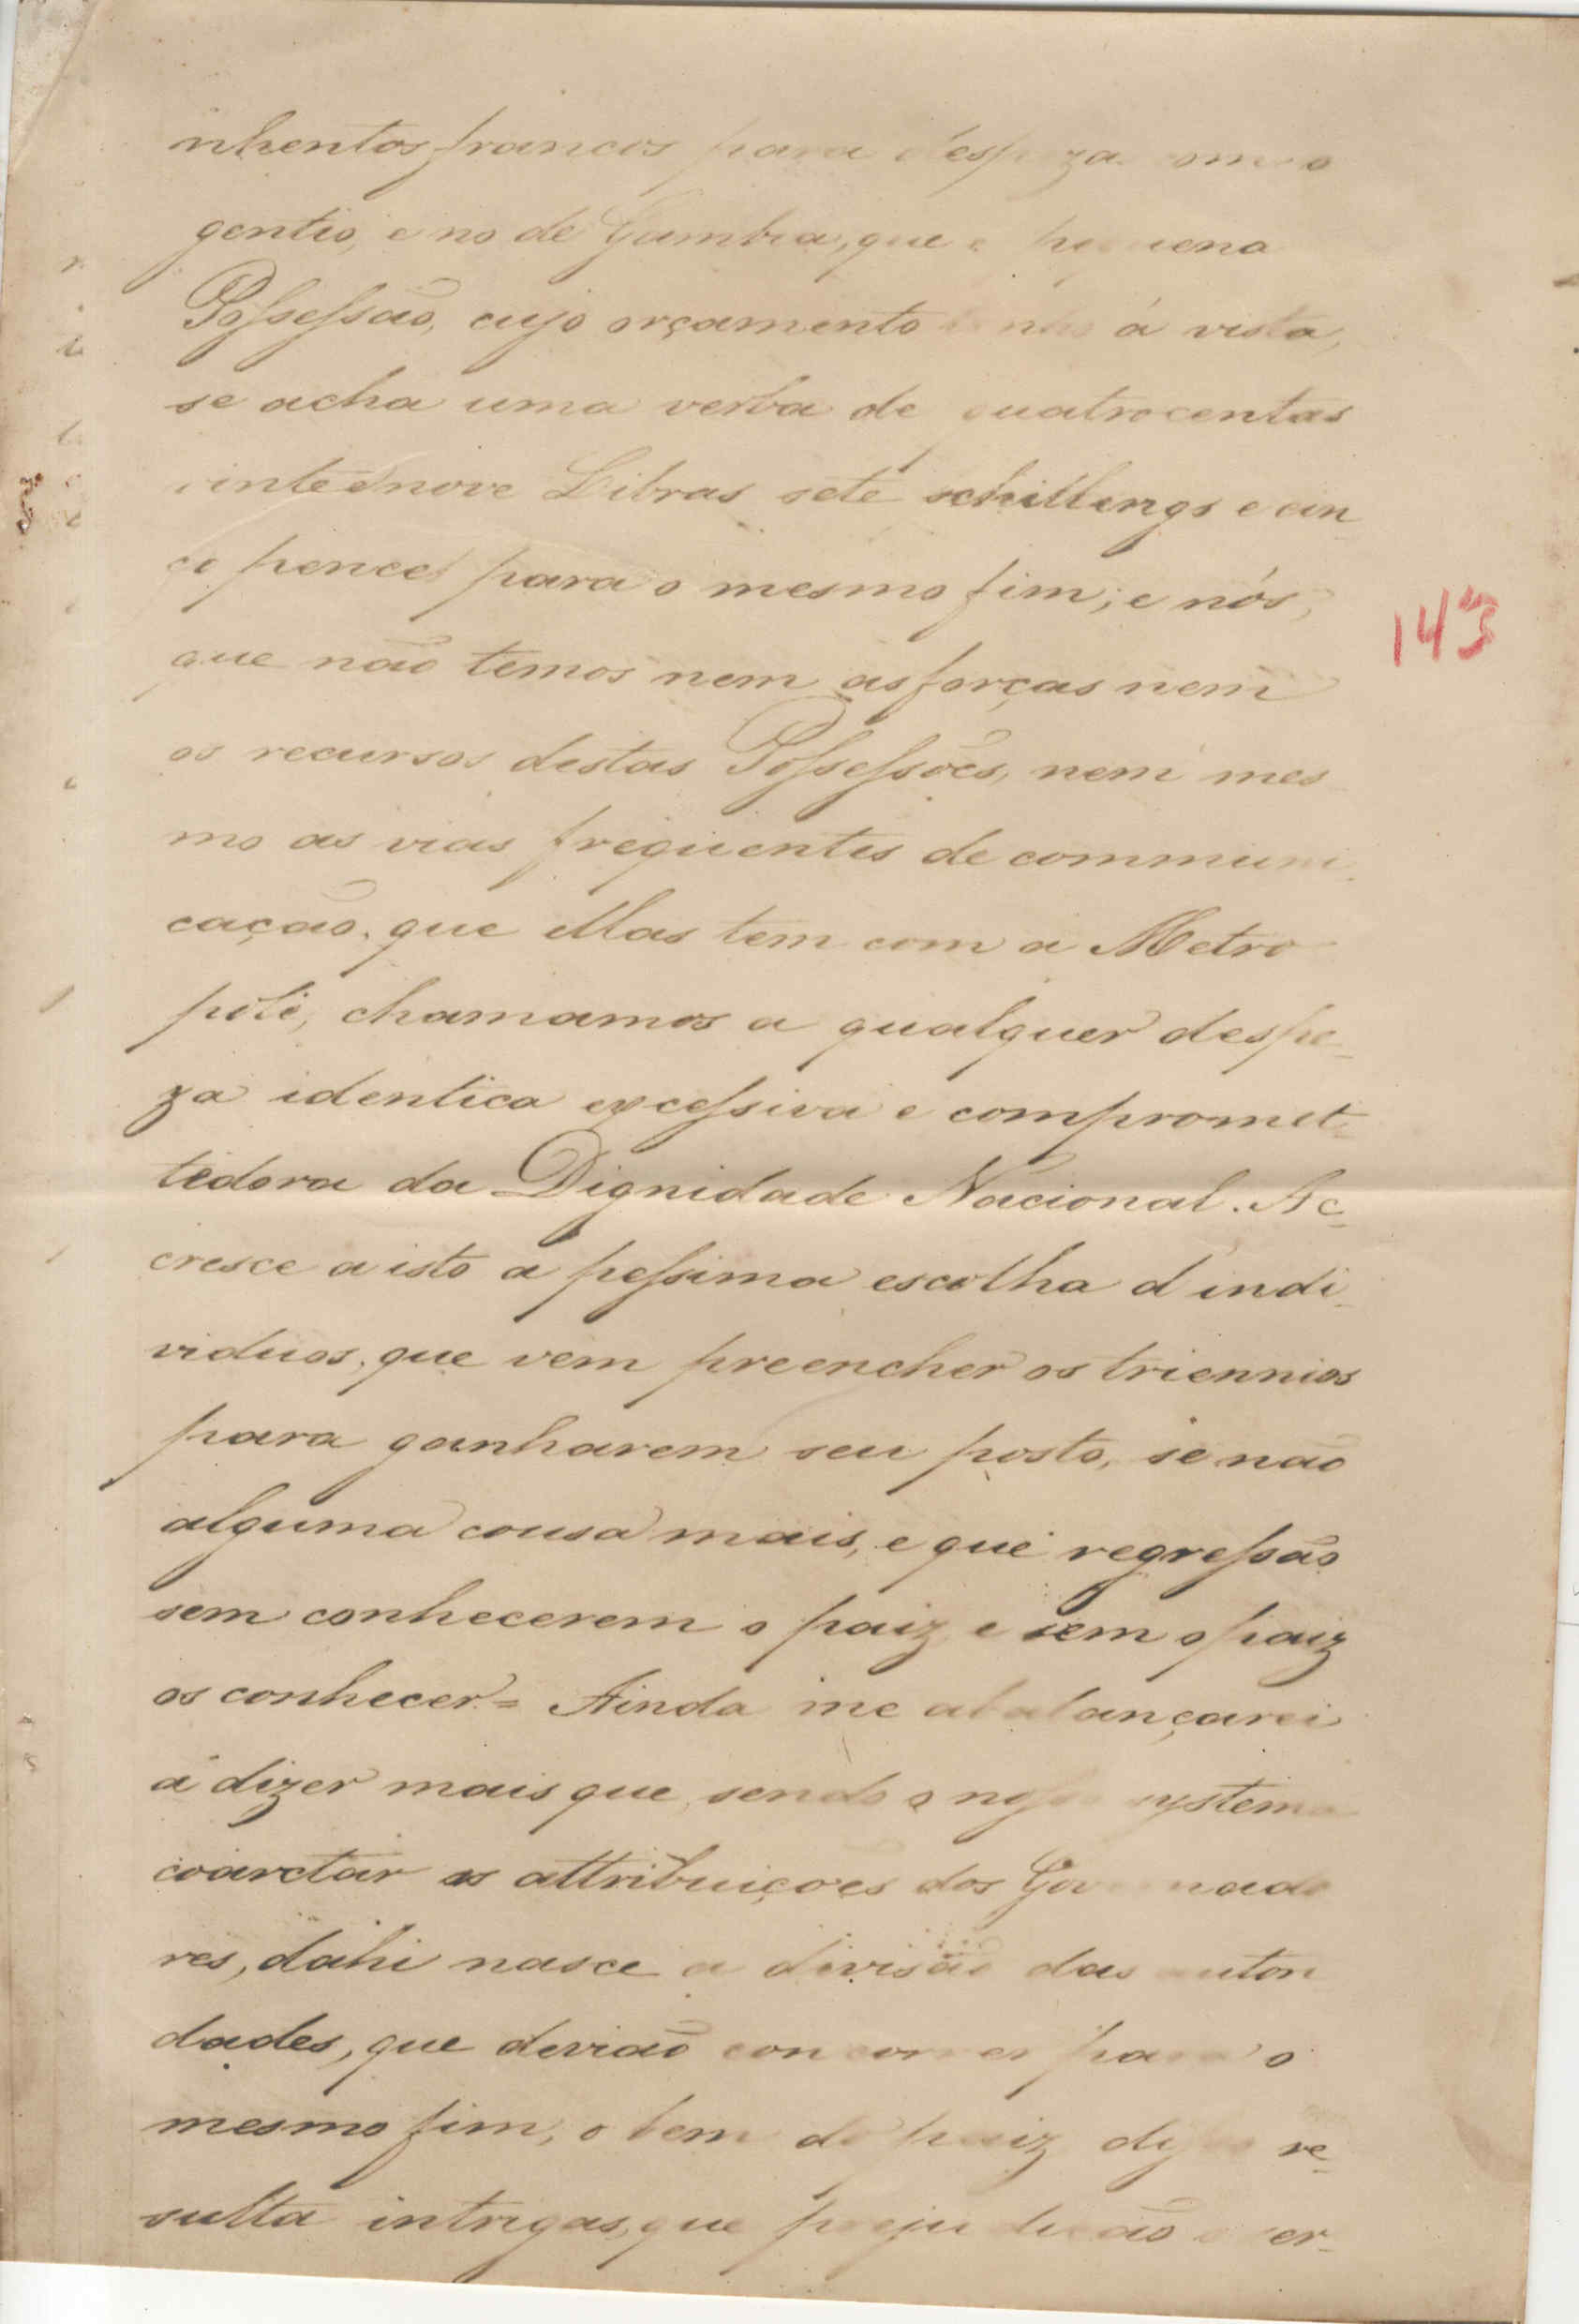 nhentos francos para despeza com o
gentio, e no de Gambia, que é pequena
Possessão, cujo orçamento tenho á vista,
se acha uma verba de quatrocentas
vinte e nove Libras sete schillings e cin
co pences para o mesmo fim; e nós,
que não temos nem as forças nem
os recursos destas Possessões, nem mes
mo as vias frequentes de communi-
cação, que ellas tem com a Metro
poli, chamamos a qualquer despe-
za identica excessiva e compromet-
tedora da Dignidade Nacional. Ac-
cresce a isto a pessima escolha d'indi-
viduos, que vem preencher os triennios
para ganharem seu posto, se não
alguma cousa mais, e que regressão
sem conhecerem o paiz e sem o paiz
os conhecer = Ainda me abalançarei
a dizer mais que, sendo o nosso systema
coarctar as attribuições dos Governado
res, dahi nasce a divisão das autori
dades, que devião concorrer para o
mesmo fim, o bem do paiz, disso re-
sulta intrigas, que prejudicão o ser-
143